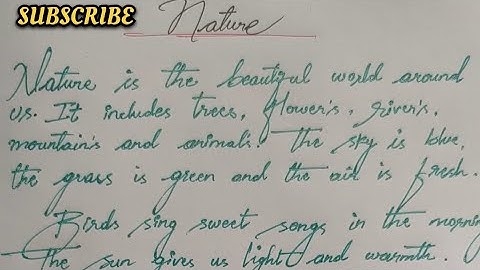 SUBSCRIBE
Nature
Nature is the beautiful world around
us. It includes trees, flower's, river's,
mountain's and animal's. The sky is blue,
the grass is green and the air is fresh.
Birds sing sweet songs in the morning
The sun gives us light and warmth.